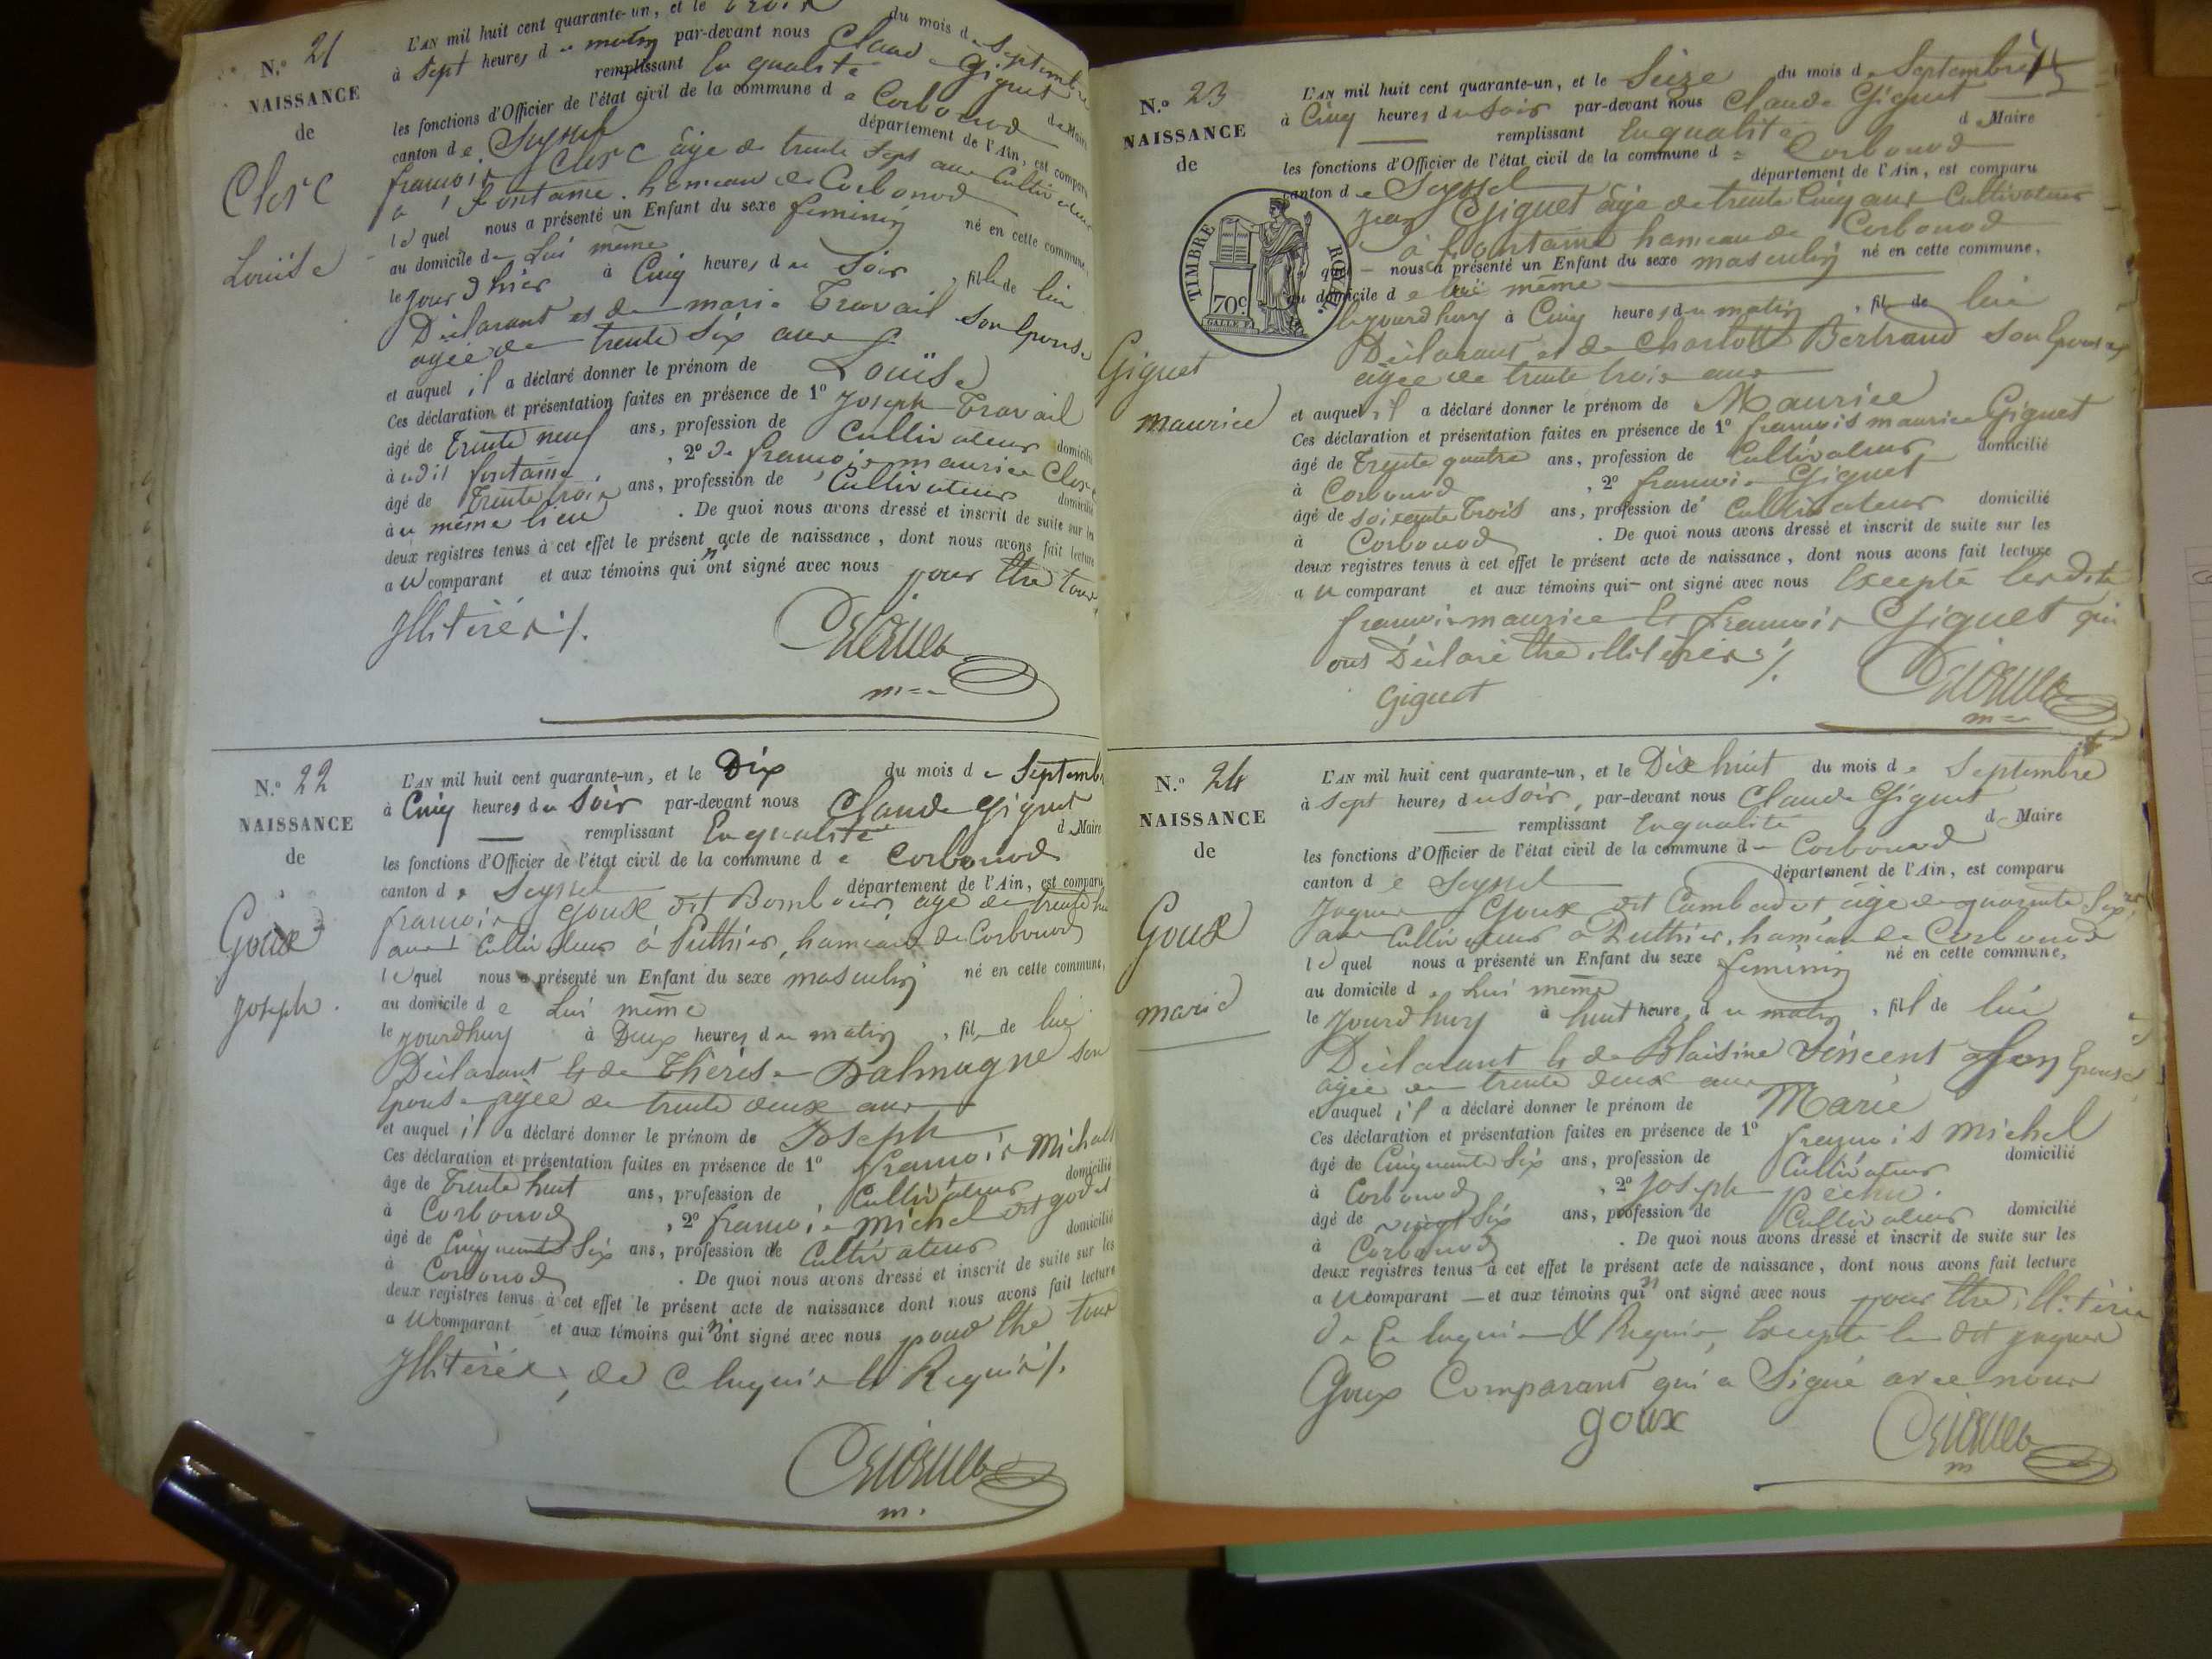 N.º 21
NAISSANCE
de
Clerc
Louise
L'AN mil huit cent quarante-un, et le trois du mois de Septembre
à Sept heures du matin par-devant nous Claude Giguet
remplissant En qualité de Maire
les fonctions d'Officier de l'état civil de la commune de Corbonod
canton de Seyssel département de l'Ain, est comparu
françois Clerc âgé de trente Sept ans Cultivateur
a fontaine hameau de Corbonod
lequel nous a présenté un Enfant du sexe feminin né en cette commune,
au domicile de Lui même
le jour d'hier à Cinq heures du Soir, fille de lui
Déclarant et de marie Travail Son Epouse
agée de trente Six ans
et auquel il a déclaré donner le prénom de Louïse
Ces déclaration et présentation faites en présence de 1º Joseph Travail
âgé de Trente neuf ans, profession de Cultivateur domicilié
à udit fontaine, 2º de françois maurice Clerc
âgé de Trente trois ans, profession de Cultivateur domicilié
à u même lieu. De quoi nous avons dressé et inscrit de suite sur les
deux registres tenus à cet effet le présent acte de naissance, dont nous avons fait lecture
au comparant et aux témoins qui n'ont signé avec nous pour être tous
Illitérés ./.
Giguet
m
N.º 22
NAISSANCE
de
Goux
joseph.
L'AN mil huit cent quarante-un, et le Dix du mois de Septembre
à Cinq heures du Soir par-devant nous Claude Giguet
remplissant En qualité de Maire
les fonctions d'Officier de l'état civil de la commune de Corbonod
canton de Seyssel département de l'Ain, est comparu
françois Goux dit agé de trente
ans Cultivateur à Puthier, hameau de Corbonod
lequel nous a présenté un Enfant du sexe masculin né en cette commune,
au domicile de Lui même
le jourdhuy à Deux heures du matin, fils de lui
Déclarant Et de Thérèse Dalmagne son
Epouse agée de trente deux ans
et auquel il a déclaré donner le prénom de Joseph
Ces déclaration et présentation faites en présence de 1º françois Michel
âgé de Trente huit ans, profession de Cultivateur domicilié
à Corbonod, 2º françois michel dit godet
âgé de Cinquante Six ans, profession de Cultivateur domicilié
à Corbonod. De quoi nous avons dressé et inscrit de suite sur les
deux registres tenus à cet effet le présent acte de naissance dont nous avons fait lecture
au comparant et aux témoins qui n'ont signé avec nous pour être tous
Illitérés, de Ce Enquis Et Requis ./.
Giguet
m.
N.º 23
NAISSANCE
de
Giguet
maurice
TIMBRE ROYAL
70c
L'AN mil huit cent quarante-un, et le Seize du mois de Septembre
à Cinq heures du soir par-devant nous Claude Giguet
remplissant En qualité de Maire
les fonctions d'Officier de l'état civil de la commune de Corbonod
canton de Seyssel département de l'Ain, est comparu
jean Giguet âgé de trente Cinq ans Cultivateur
à fontaine hameau de Corbonod
quel nous a présenté un Enfant du sexe masculin né en cette commune,
au domicile de lui même
le jourdhuy à Cinq heures du matin, fils de lui
Déclarant et de Charlotte Bertrand Son Epouse
agée de trente trois ans
et auquel il a déclaré donner le prénom de Maurice
Ces déclaration et présentation faites en présence de 1º françois maurice Giguet
âgé de Trente quatre ans, profession de Cultivateur domicilié
à Corbonod, 2º françois Giguet
âgé de soixante Trois ans, profession de Cultivateur domicilié
à Corbonod. De quoi nous avons dressé et inscrit de suite sur les
deux registres tenus à cet effet le présent acte de naissance, dont nous avons fait lecture
au comparant et aux témoins qui ont signé avec nous Excepté les dits
françois maurice Et françois Giguet qui
ont Déclaré être illitérés ./.
Giguet
Giguet
m
N.º 24
NAISSANCE
de
Goux
marie
L'AN mil huit cent quarante-un, et le Dix huit du mois de Septembre
à sept heures du soir, par-devant nous Claude Giguet
remplissant En qualité de Maire
les fonctions d'Officier de l'état civil de la commune de Corbonod
canton de Seyssel département de l'Ain, est comparu
Jaques Goux dit âgé de quarante Six
ans Cultivateur a Puthier, hameau de Corbonod
lequel nous a présenté un Enfant du sexe feminin né en cette commune,
au domicile de Lui même
le jourdhuy à huit heures du matin, fille de lui
Déclarant Et de Blaisine Vincent Son Epouse
agée de trente deux ans
et auquel il a déclaré donner le prénom de Marie
Ces déclaration et présentation faites en présence de 1º françois Michel
âgé de Cinquante Six ans, profession de Cultivateur domicilié
à Corbonod, 2º Joseph
âgé de vingt Six ans, profession de Cultivateur domicilié
à Corbonod. De quoi nous avons dressé et inscrit de suite sur les
deux registres tenus à cet effet le présent acte de naissance, dont nous avons fait lecture
au comparant et aux témoins qui n'ont signé avec nous pour être illitérés
de Ce Enquis & Requis, Excepté le dit jaques
Goux Comparant qui a Signé avec nous
goux
Giguet
m